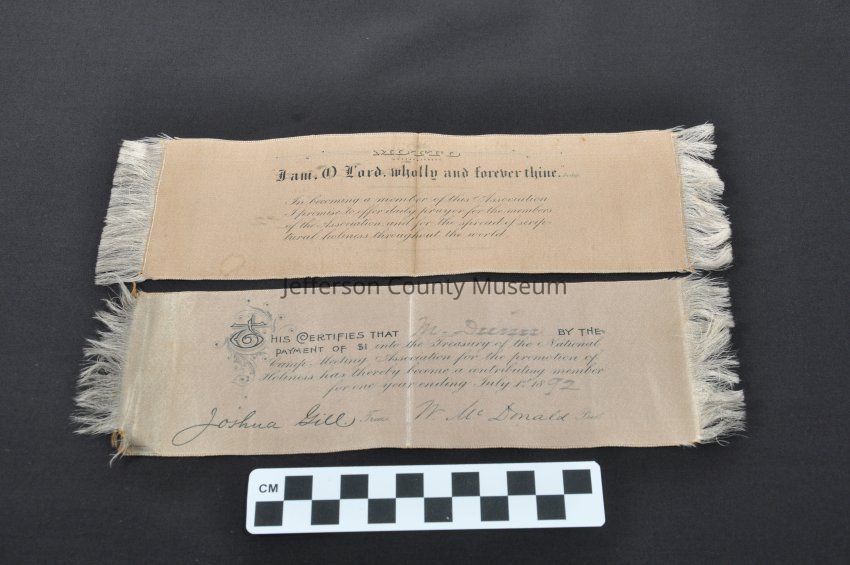 I am, O Lord, wholly and forever thine.
In becoming a member of this Association
I promise to offer daily prayer for the members
of the Association and for the spread of scrip-
tural holiness throughout the world
Jefferson County Museum
THIS CERTIFIES THAT M. Dunn BY THE
PAYMENT OF $1 into the Treasury of the National
Camp-Meeting Association for the promotion of
Holiness has thereby become a contributing member
for one year ending July 1st 1892
Joshua Gill Treas W McDonald Pres
CM